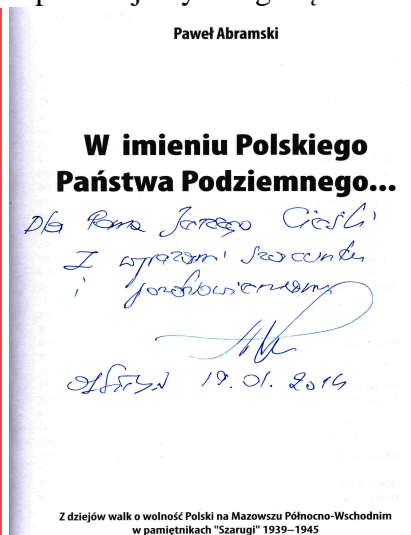 Paweł Abramski
W imieniu Polskiego
Państwa Podziemnego...
Dla Pana Jerzego Cieśli
Z wyrazami szacunku
i pozdrowieniami
Olsztyn 19.01.2014
Z dziejów walk o wolność Polski na Mazowszu Północno-Wschodnim
w pamiętnikach "Szarugi" 1939–1945